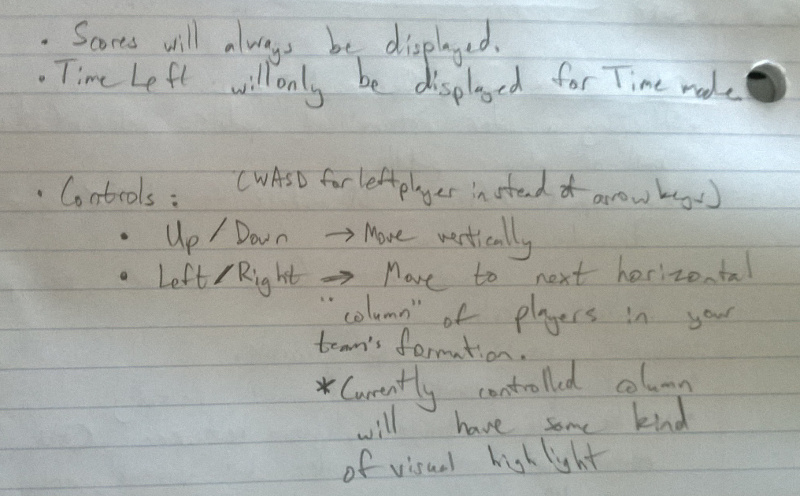 • Scores will always be displayed.
• Time Left will only be displayed for Time mode.
• Controls : (WASD for left player instead of arrow keys)
• Up / Down → Move vertically
• Left / Right → Move to next horizontal
"column" of players in your
team's formation.
* Currently controlled column
will have some kind
of visual highlight